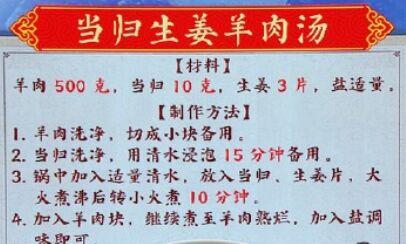 当归生姜羊肉汤
【材料】
羊肉 500 克，当归 10 克，生姜 3 片，盐适量。
【制作方法】
1. 羊肉洗净，切成小块备用。
2. 当归洗净，用清水浸泡 15 分钟备用。
3. 锅中加入适量清水，放入当归、生姜片，大
火煮沸后转小火煮 10 分钟。
4. 加入羊肉块，继续煮至羊肉熟烂，加入盐调
味即可